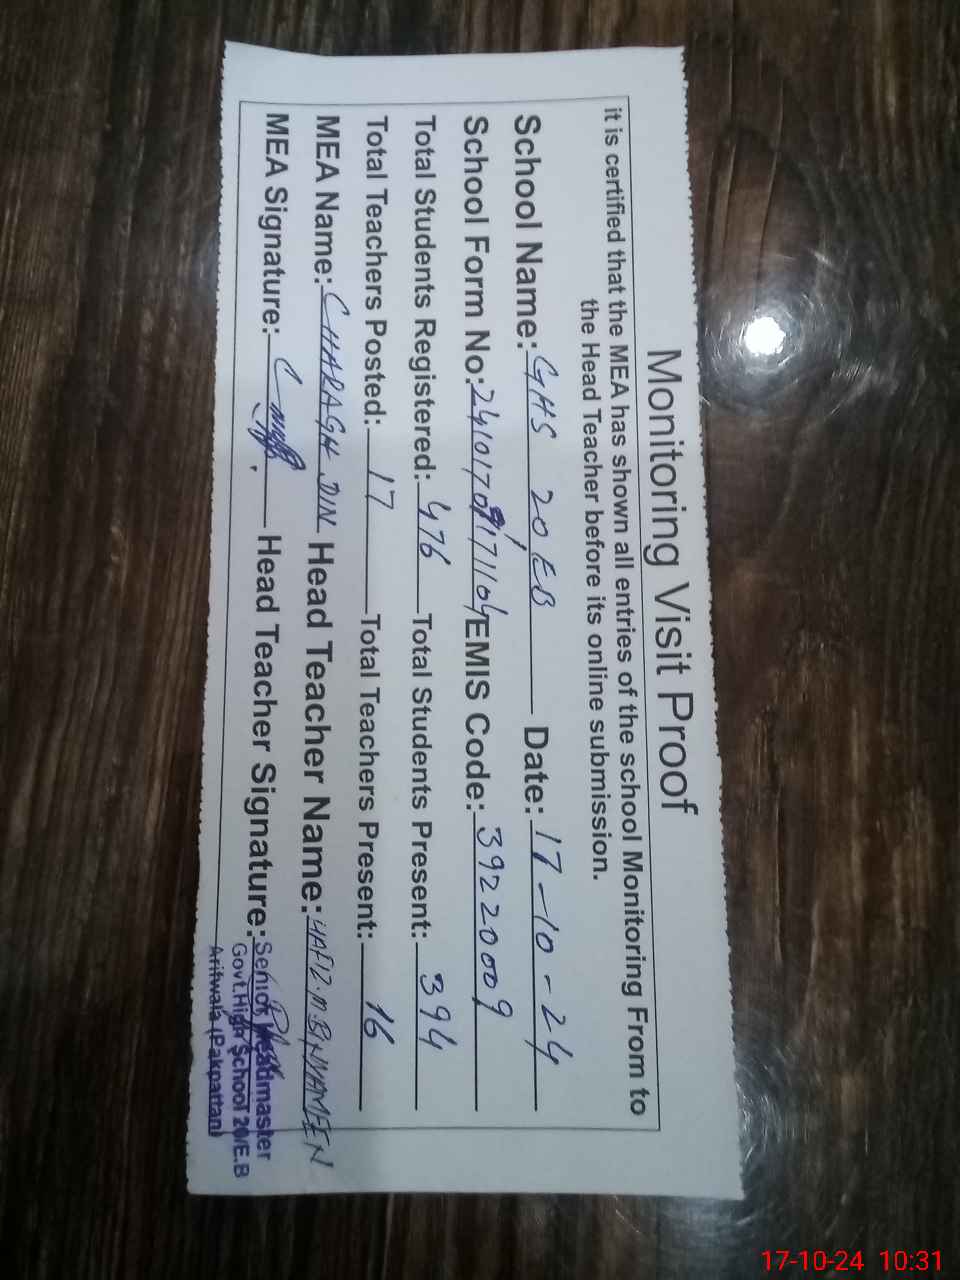 Monitoring Visit Proof
it is certified that the MEA has shown all entries of the school Monitoring From to
the Head Teacher before its online submission.
School Name: GHS 20/EB Date: 17-10-24
School Form No: EMIS Code: 39220009
Total Students Registered: 476 Total Students Present: 394
Total Teachers Posted: 17 Total Teachers Present: 16
MEA Name: CHARAGH DIN Head Teacher Name: HAFIZ.M.BINYAMEEN
MEA Signature: Head Teacher Signature:
Senior Headmaster
Govt.High School 20/E.B
Arifwala (Pakpattan)
17-10-24 10:31